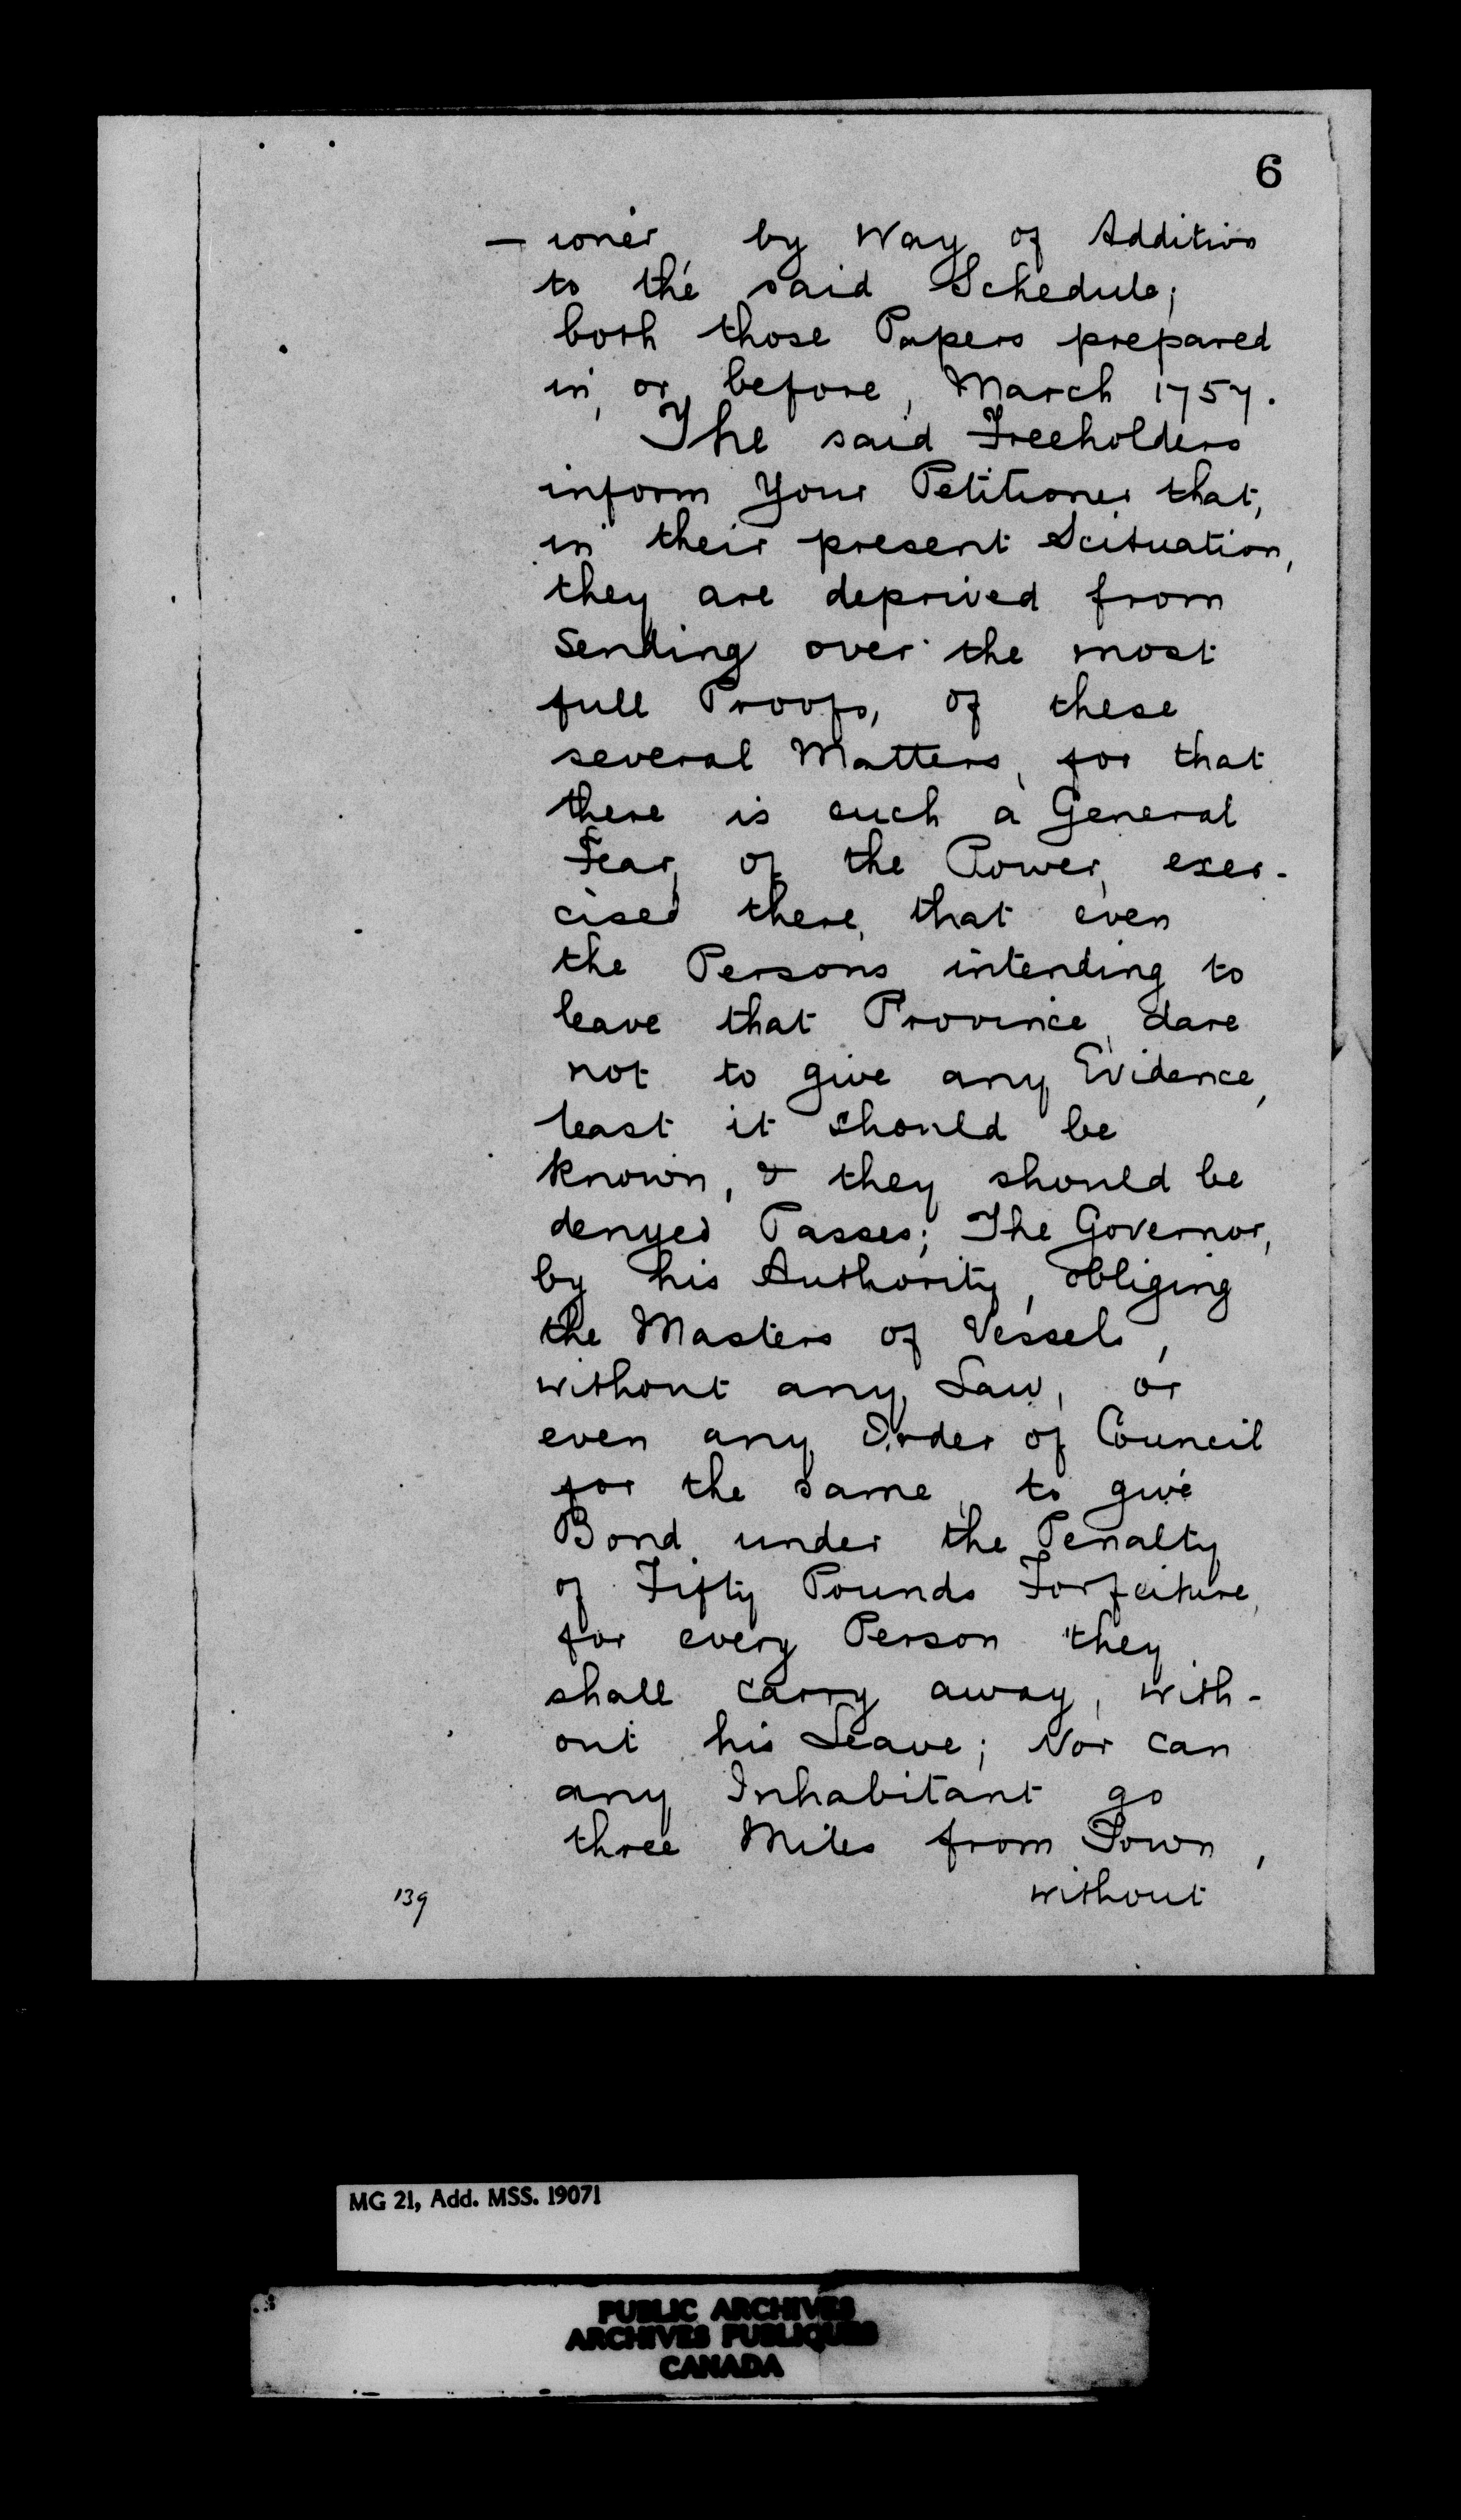 6
— ioner, by Way of Addition
to the said Schedule;
both those Papers prepared
in, or before, March 1757.
The said Freeholders
inform Your Petitioner that,
in their present Scituation,
they are deprived from
sending over the most
full Proofs, of these
several Matters, for that
there is such a General
Fear, of the Power, exer-
cised there, that even
the Persons intending to
leave that Province, dare
not to give any Evidence,
least it should be
known, & they should be
denyed Passes; The Governor,
by his Authority, obliging
the Masters of Vessels,
without any Law, or
even any Order of Council
for the same, to give
Bond under the Penalty
of Fifty Pounds Forfeiture,
for every Person they
shall carry away, with-
out his Leave; Nor can
any Inhabitant go
three Miles from Town,
without
139
MG 21, Add. MSS. 19071
PUBLIC ARCHIVES
ARCHIVES PUBLIQUES
CANADA